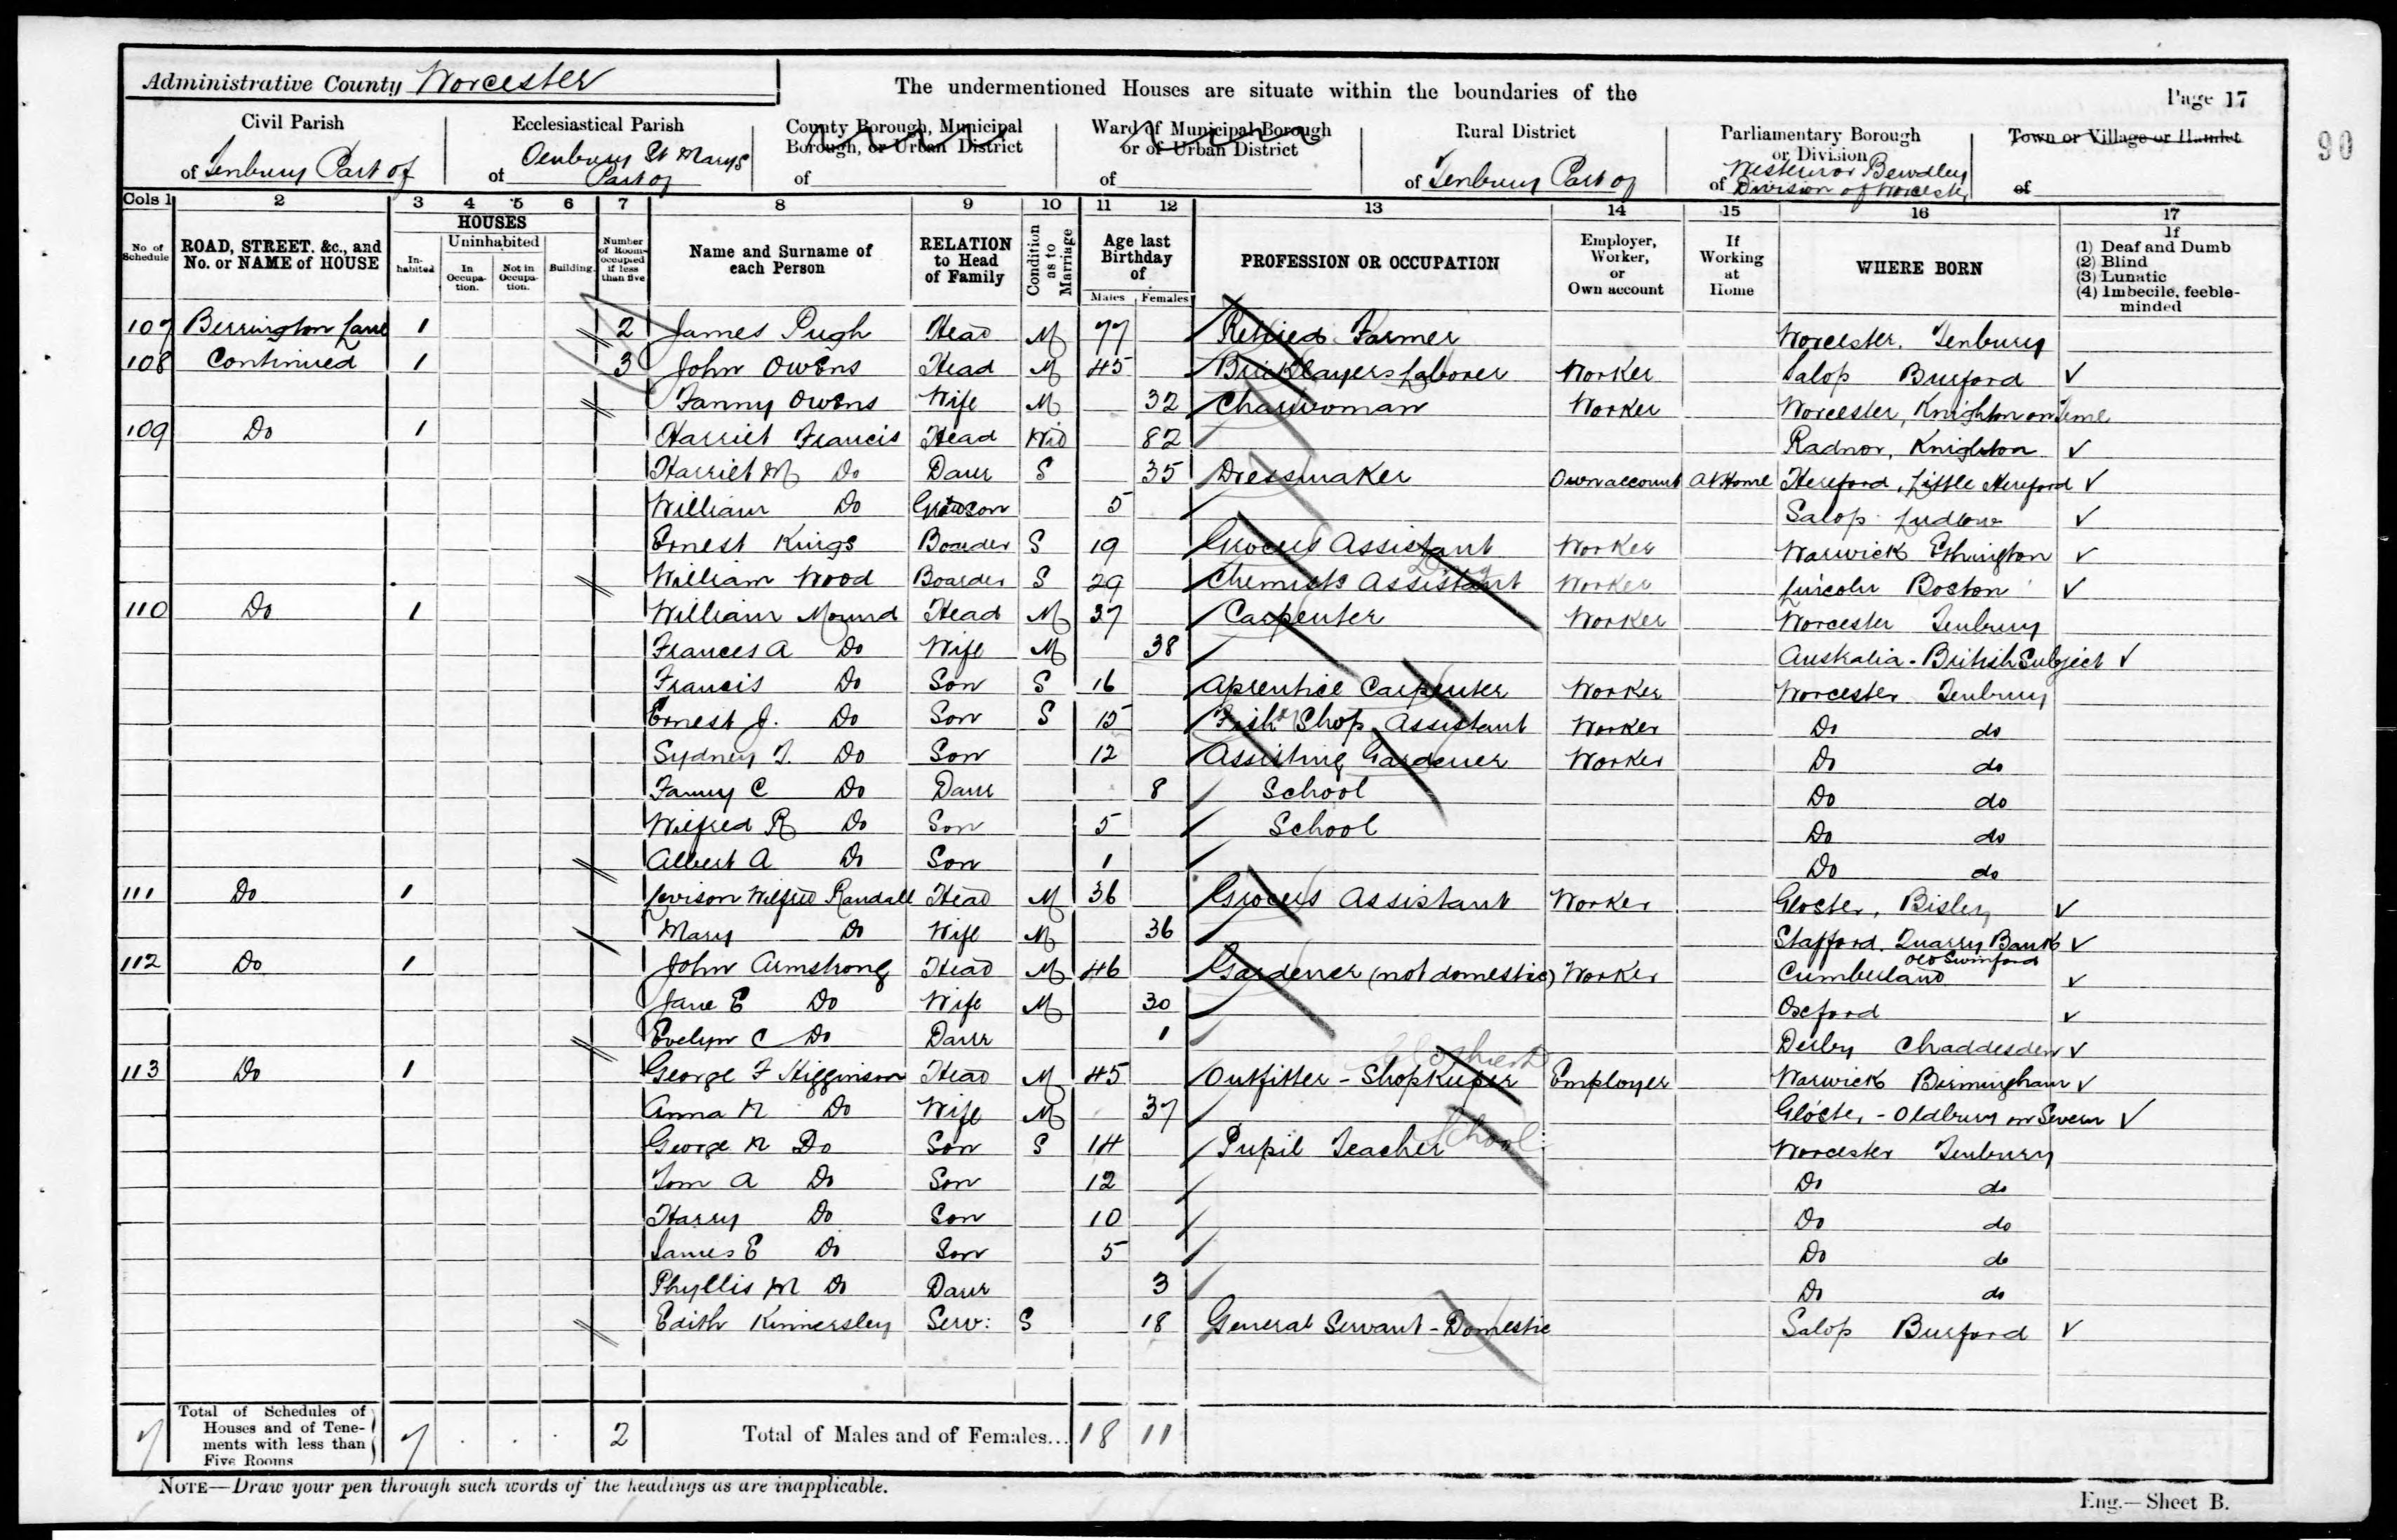 Administrative County Worcester
The undermentioned Houses are situate within the boundaries of the
Page 17
90
Civil Parish
of Tenbury Part of
Ecclesiastical Parish
of Tenbury St Marys
Part of
County Borough, Municipal
Borough, or Urban District
of
Ward of Municipal Borough
or of Urban District
of
Rural District
of Tenbury Part of
Parliamentary Borough
or Division
Western or Bewdley
of Division of
Town or Village or Hamlet
of
Cols 1 2 3 4 5 6 7 8 9 10 11 12 13 14 15 16 17
No of Schedule
ROAD, STREET. &c., and No. or NAME of HOUSE
HOUSES
Inhabited
Uninhabited
In Occupation.
Not in Occupation.
Building.
Number of Rooms occupied if less than five
Name and Surname of each Person
RELATION to Head of Family
Condition as to Marriage
Age last Birthday of
Males Females
PROFESSION OR OCCUPATION
Employer, Worker, or Own account
If Working at Home
WHERE BORN
If
(1) Deaf and Dumb
(2) Blind
(3) Lunatic
(4) Imbecile, feeble-minded
107 Berrington Lane 1 2 James Pugh Head M 77 Retired Farmer Worcester. Tenbury
108 Continued 1 3 John Owens Head M 45 Bricklayers Laborer Worker Salop Burford
Fanny Owens Wife M 32 Charwoman Worker Worcester, Knighton on Teme
109 Do 1 Harriet Francis Head Wid 82 Radnor, Knighton
Harriet M Do Daur S 35 Dressmaker Own account At Home Hereford, Little Hereford
William Do Grandson 5 Salop Ludlow
Ernest Kings Boarder S 19 Grocers Assistant Worker Warwick
William Wood Boarder S 29 Chemists Assistant Worker Lincoln Boston
110 Do 1 William Mound Head M 37 Carpenter Worker Worcester Tenbury
Frances A Do Wife M 38 Australia - British Subject
Francis Do Son S 16 Aprentice Carpenter Worker Worcester Tenbury
Ernest J. Do Son S 15 Fish Shop Assistant Worker Do do
Sydney T. Do Son 12 Assisting Gardener Worker Do do
Fanny C Do Daur 8 School Do do
Wilfred R Do Son 5 School Do do
Albert A Do Son 1 Do do
111 Do 1 Levison Wilfred Randall Head M 36 Grocers Assistant Worker Gloster, Bisley
Mary Do Wife M 36 Stafford. Quarry Bank
112 Do 1 John Armstrong Head M 46 Gardener (not domestic) Worker Cumberland Old Swinford
Jane E Do Wife M 30 Oxford
Evelyn C Do Daur 1 Derby Chaddesden
113 Do 1 George F Higginson Head M 45 Outfitter - Shopkeeper Employer Warwick Birmingham
Anna N Do Wife M 37 Gloster - Oldbury on Severn
George N Do Son S 14 Pupil Teacher School Worcester Tenbury
Tom A Do Son 12 Do do
Harry Do Son 10 Do do
James E Do Son 5 Do do
Phyllis M Do Daur 3 Do do
Edith Kinnersley Serv: S 18 General Servant - Domestic Salop Burford
7 Total of Schedules of Houses and of Tenements with less than Five Rooms 7 2 Total of Males and of Females... 18 11
NOTE—Draw your pen through such words of the headings as are inapplicable.
Eng.—Sheet B.